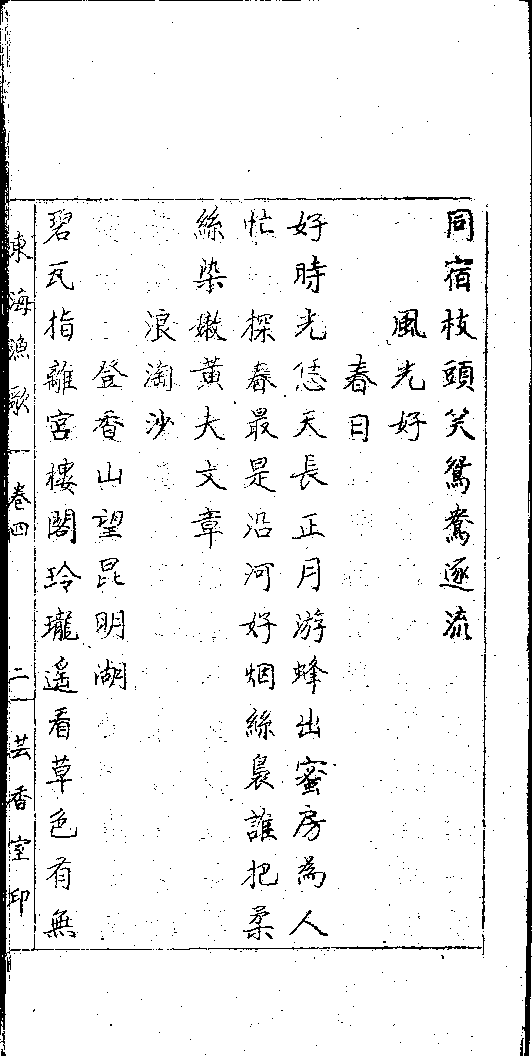 同宿枝頭笑鴛鴦逐流
風光好
春日
好時光恁天長正月游蜂出蜜房為人
忙　探春最是沿河好烟絲裊誰把柔
絲染嫩黃大文章
浪淘沙
登香山望昆明湖
碧瓦指離宮樓閣玲瓏遙看草色有無
東海漁歌　卷四　二　芸香室印